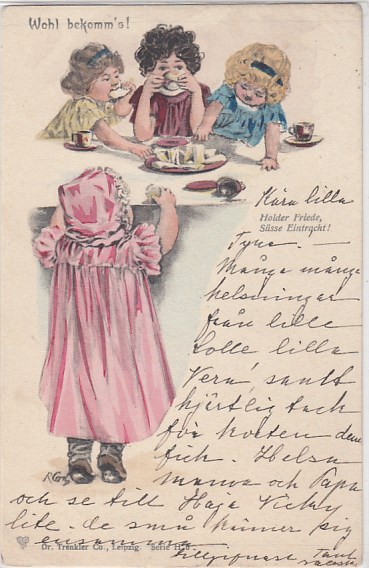 Wohl bekomm's!
Kära lilla
Holder Friede,
Süsse Eintracht!
Tyra. —
Många många
helsningar
från lille
Lolle lilla
Vera, samt
hjärtlig tack
för korten de
fick. Helsa
mamma och Papa
och se till Vicky
lite. De små känner sig
ensamma
Dr. Trenkler Co., Leipzig. Serie
Tant